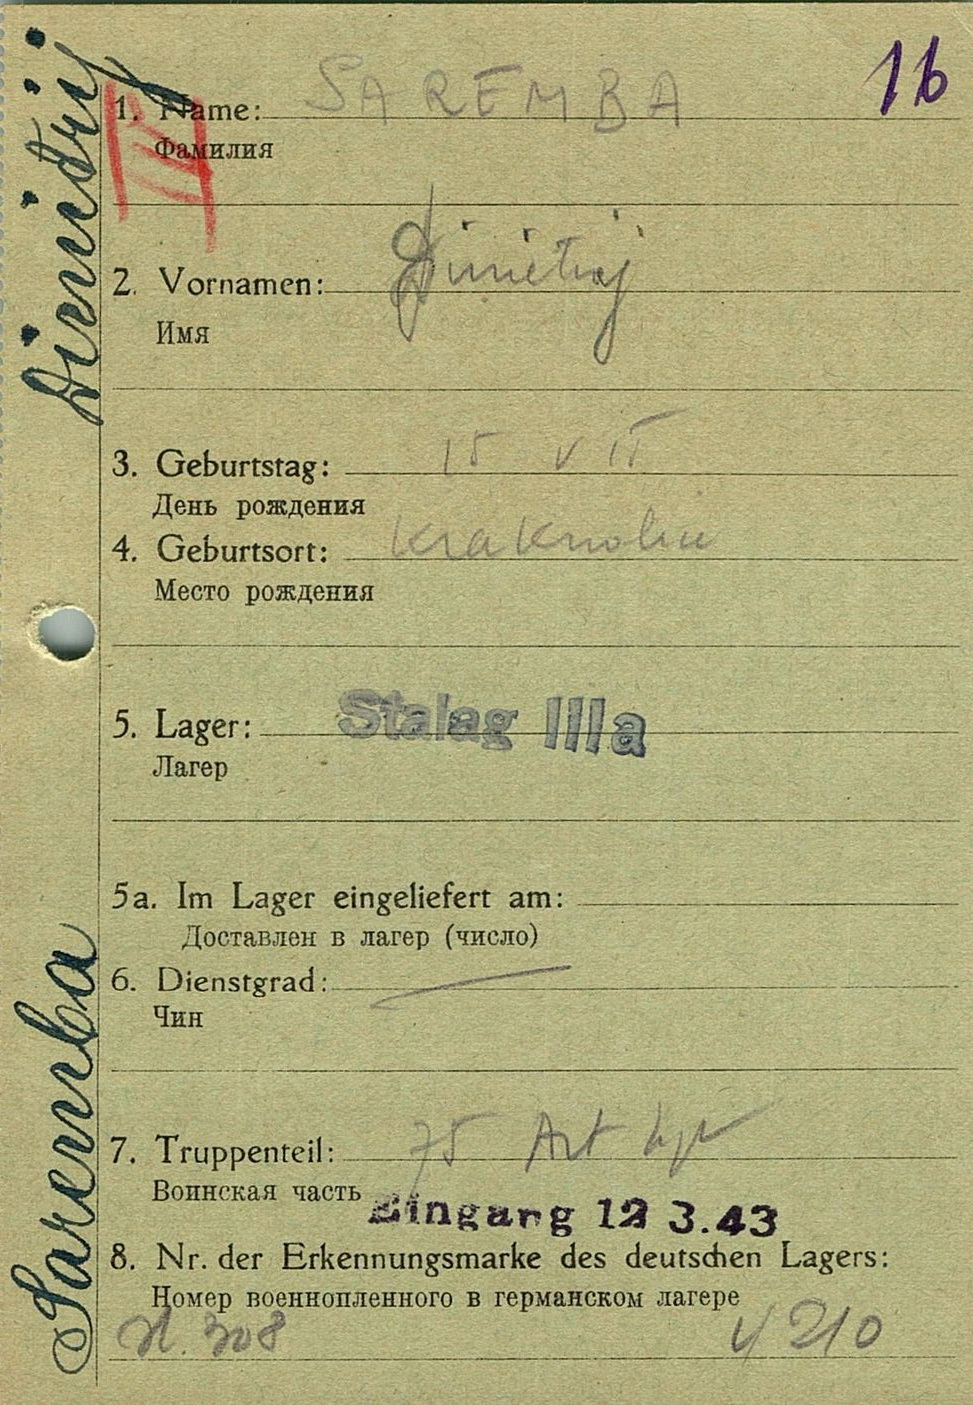 16
1. Name: SAREMBA
Фамилия
2. Vornamen: Dimetrij
Имя
3. Geburtstag: 15 VII
День рождения
4. Geburtsort:
Место рождения
5. Lager: Stalag IIIa
Лагер
5a. Im Lager eingeliefert am:
Доставлен в лагер (число)
6. Dienstgrad:
Чин
7. Truppenteil: 75 Art
Воинская часть
Eingang 12 3.43
8. Nr. der Erkennungsmarke des deutschen Lagers:
Номер военнопленного в германском лагере
308 4210
Saremba Dimidrij